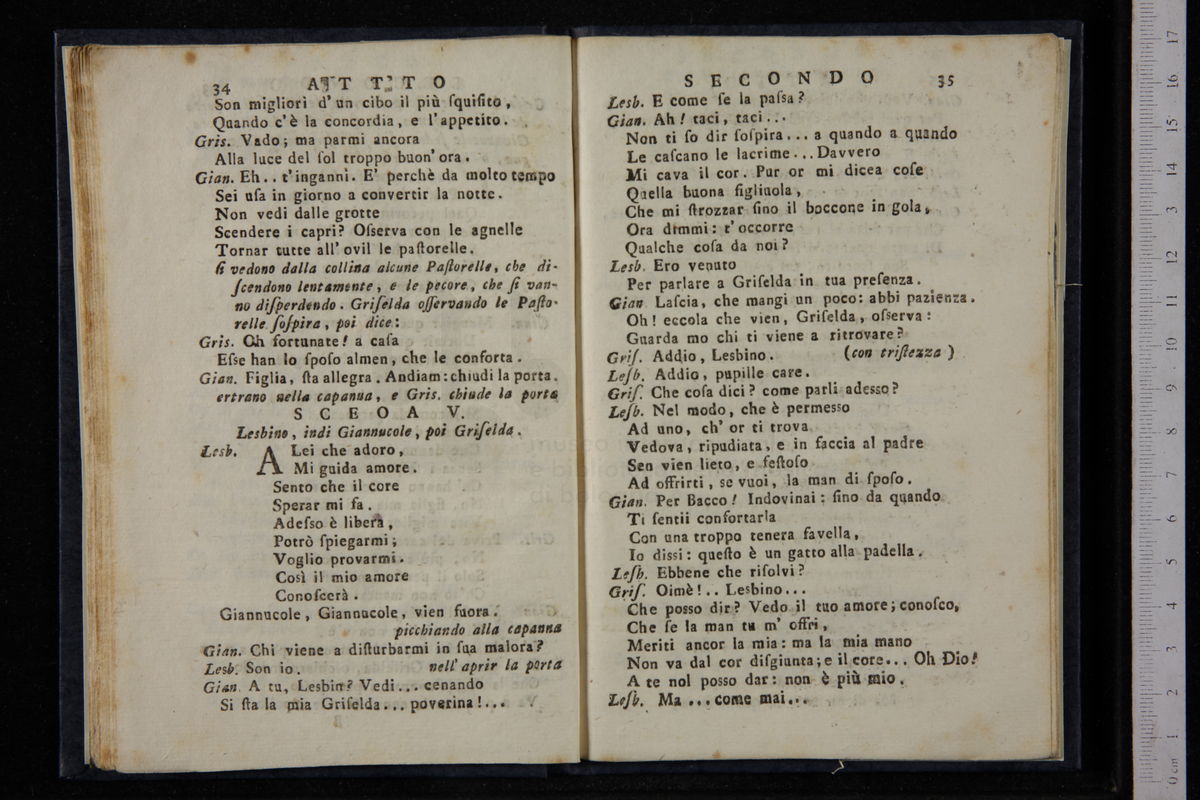 34 ATTTO
Son migliori d' un cibo il più ſquiſito,
Quando c'è la concordia, e l'appetito.
Gris. Vado; ma parmi ancora
Alla luce del ſol troppo buon' ora.
Gian. Eh.. t'inganni. E' perchè da molto tempo
Sei uſa in giorno a convertir la notte.
Non vedi dalle grotte
Scendere i capri? Oſserva con le agnelle
Tornar tutte all' ovil le paſtorelle.
ſi vedono dalla collina alcune Paſtorelle, che di-
ſcendono lentamente, e le pecore, che ſi van-
no diſperdendo. Griſelda oſſervando le Paſto-
relle ſoſpira, poi dice:
Gris. Oh fortunate! a caſa
Eſse han lo ſpoſo almen, che le conforta.
Gian. Figlia, ſta allegra. Andiam: chiudi la porta.
ertrano nella capanna, e Gris. chiude la porta
SCEOA V.
Lesbino, indi Giannucole, poi Griſelda.
Lesb. A Lei che adoro,
Mi guida amore.
Sento che il core
Sperar mi fa.
Adeſso è libera,
Potrò ſpiegarmi;
Voglio provarmi.
Così il mio amore
Conoſcerà.
Giannucole, Giannucole, vien fuora.
picchiando alla capanna
Gian. Chi viene a diſturbarmi in ſua malora?
Lesb. Son io. nell' aprir la porta
Gian. A tu, Lesbin? Vedi... cenando
Si ſta la mia Griſelda... poverina!...
SECONDO 35
Lesb. E come ſe la paſsa?
Gian. Ah! taci, taci...
Non ti ſo dir ſoſpira... a quando a quando
Le caſcano le lacrime... Davvero
Mi cava il cor. Pur or mi dicea coſe
Quella buona figliuola,
Che mi ſtrozzar ſino il boccone in gola,
Ora dimmi: t'occorre
Qualche coſa da noi?
Lesb. Ero venuto
Per parlare a Griſelda in tua preſenza.
Gian Laſcia, che mangi un poco: abbi pazienza.
Oh! eccola che vien, Griſelda, oſserva:
Guarda mo chi ti viene a ritrovare?
Griſ. Addio, Lesbino. (con triſtezza)
Leſb. Addio, pupille care.
Griſ. Che coſa dici? come parli adesso?
Leſb. Nel modo, che è permesso
Ad uno, ch' or ti trova
Vedova, ripudiata, e in faccia al padre
Sen vien lieto, e feſtoſo
Ad offrirti, se vuoi, la man di ſpoſo.
Gian. Per Bacco! Indovinai: ſino da quando
Ti ſentii confortarla
Con una troppo tenera favella,
Io dissi: queſto è un gatto alla padella.
Leſb. Ebbene che riſolvi?
Griſ. Oimè!.. Lesbino...
Che posso dir? Vedo il tuo amore; conoſco,
Che ſe la man tu m' offri,
Meriti ancor la mia: ma la mia mano
Non va dal cor diſgiunta; e il core... Oh Dio!
A te nol posso dar: non è più mio.
Leſb. Ma ... come mai...